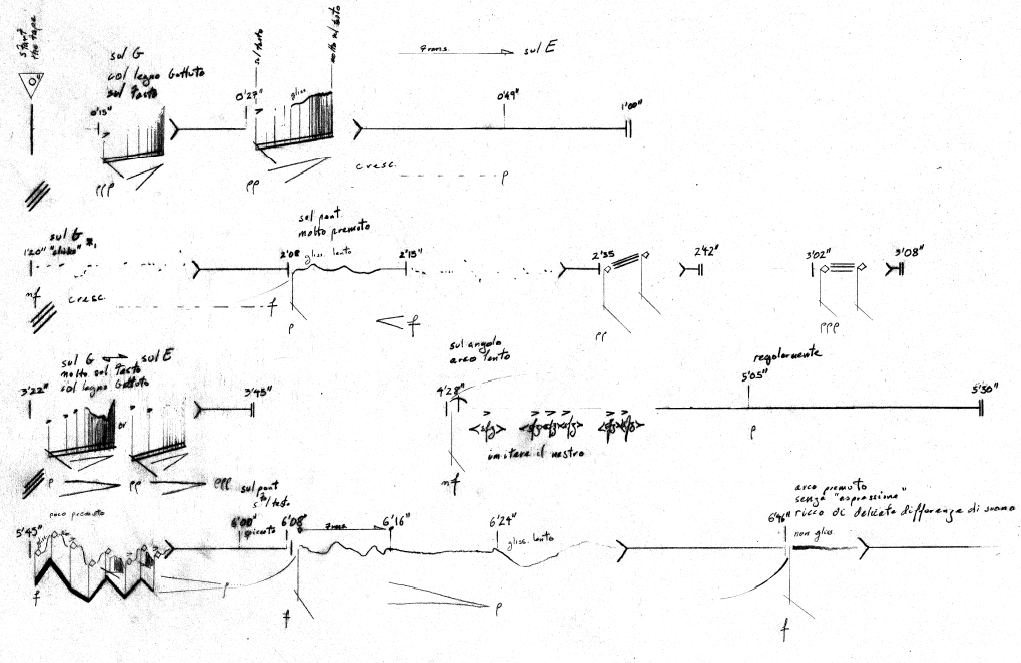 start
the tape
0"
sul G
col legno battuto
sul tasto
0'15"
0'27"
sul tasto
molto sul tasto
gliss.
trans.
sul E
0'49"
1'00"
ppp
pp
cresc.
p
sul G
1'20"
mf
cresc.
f
2'08
sul pont
molto premuto
gliss. lento
2'15"
p
f
2'35
2'42"
pp
3'02"
3'08"
ppp
sul G
sul E
molto sul tasto
col legno battuto
3'22"
or
3'45"
p
pp
ppp
sul angolo
arco lento
4'28"
<sfz>
<sfz><sfz><sfz>
<sfz><sfz>
imitare il nastro
mf
regolarmente
5'05"
p
5'30"
poco premuto
5'45"
f
p
6'00"
sul pont
6'08"
trans.
6'16"
f
6'24"
gliss. lento
p
6'46"
arco premuto
senza "espressione"
ricco di delicate differenze di suono
non gliss.
f